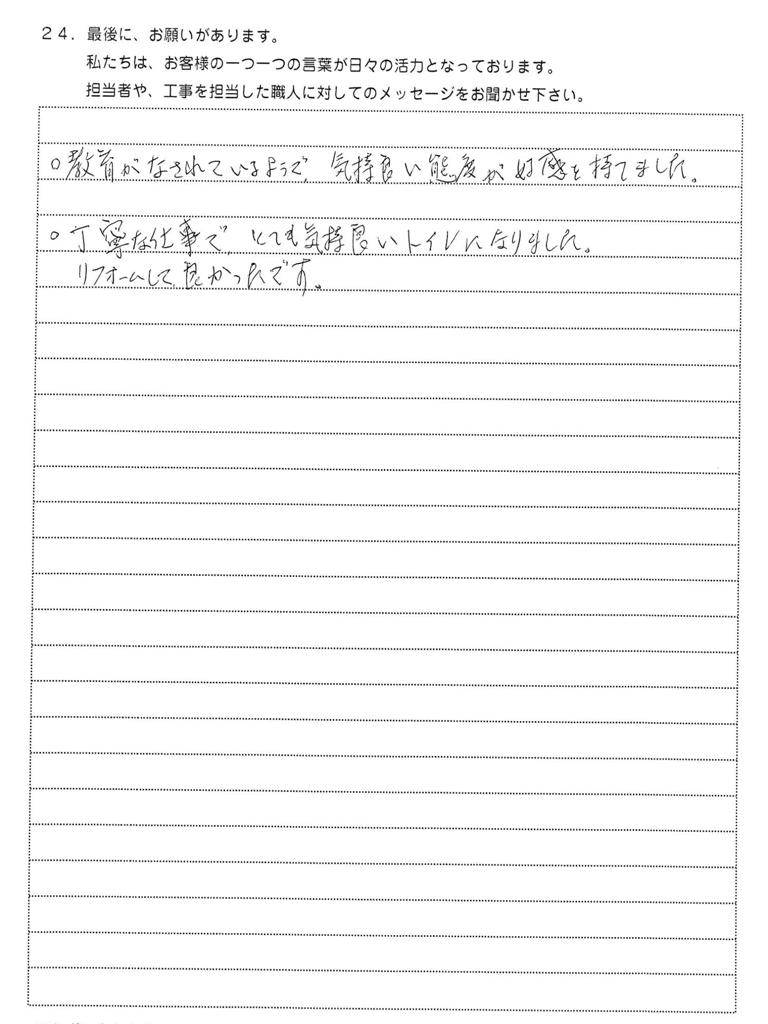 24. 最後に、お願いがあります。
私たちは、お客様の一つ一つの言葉が日々の活力となっております。
担当者や、工事を担当した職人に対してのメッセージをお聞かせ下さい。
○教育がなされているようで、気持良い態度が好感を持てました。
○丁寧な仕事で、とても気持良いトイレになりました。
リフォームして良かったです。